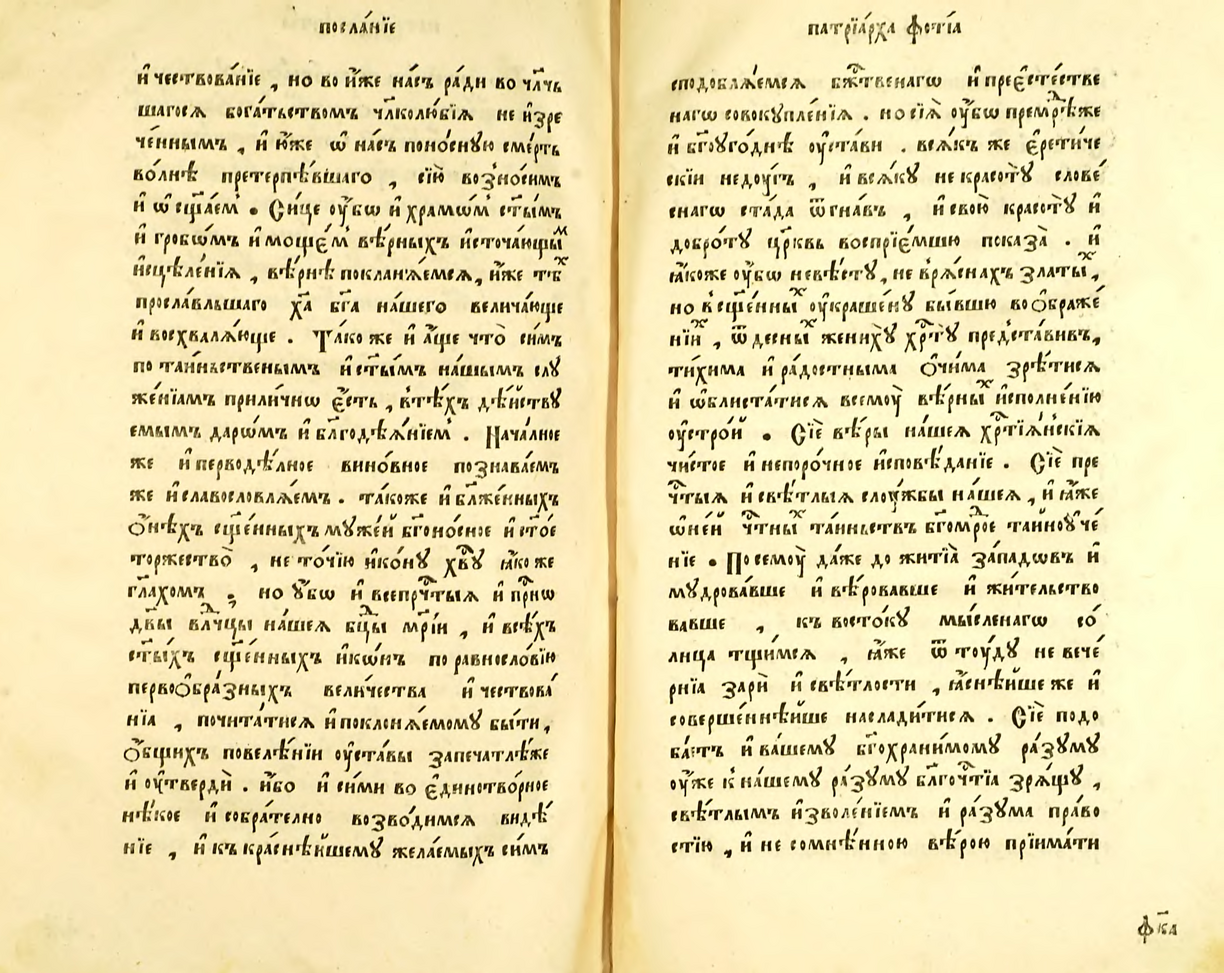 посла́нїе
и҆ чествова́нїе , но во и҆́же на́съ ра́ди во чл҃чь
шагосѧ бога́тьствомъ чл҃колю́бїѧ не и҆зре
че́ннымъ , и҆ ю҆́же ѿ на́съ поно́сную сме́рть
во́лнѣ претерпѣ́вшаго , сїю̀ возно́симъ
и҆ ѡ҆сщ҃а́ем̾ . Си́це оу҆́бо и҆ хра́мѡм̾ ст҃ы́мъ
и҆ гробѡ́мъ и҆ моще́м̾ вѣ́рныхъ и҆сточа́ющыⷨ
и҆сцѣле́нїѧ , вѣ́рнѣ покланѧ́емсѧ , и҆́же тѣⷯ
просла́вльшаго хр҃а̀ бг҃а на́шего велича́юще
и҆ восхвалѧ́юще . Та́ко же и҆ а҆́ще что̀ си́мъ
по таи́ньственымъ и҆ ст҃ы́мъ на́шымъ слꙋ
же́нїамъ прили́чнѡ є҆́сть , в̾тѣ́хъ дѣ́йствꙋ
емымъ да́рѡмъ и҆ бл҃годѣѧ́нїем̾ . Нача́лное
же и҆ перводѣ́лное вино́вное познава́емъ
же и҆ славословлѧ́емъ . та́коже и҆ бл҃же́нныхъ
ѻ҆́нѣхъ сщ҃е́нныхъ мꙋже́й бг҃оно́сное и҆ ст҃о́е
торжество̀ , не то́чїю и҆ко́нꙋ хв҃ꙋ ꙗ҆́ко же
гл҃ахомъ ; но ᲂу҆́бѡ и҆ всепрⷭ҇тыѧ и҆ прⷭ҇нѡ
дв҃ы влⷣчцы на́шея бцⷣы мр҃і́и , и҆ всѣ́хъ
ст҃ы́хъ сщ҃е́нныхъ и҆кѡ́нъ по равносло́вїю
первоѻбра́зныхъ вели́чества и҆ чествова́
нїа , почита́тисѧ и҆ поклонѧ́емомꙋ бы́ти ,
ѻ҆́бщихъ повелѣ́нїи оу҆ста́вы запечатлѣ́же
и҆ оу҆твердѝ . и҆́бо и҆ си́ми во є҆динотво́рное
нѣ́кое и҆ собра́телно возво́димсѧ видѣ́
нїе , и҆ къ краснѣ́йшемꙋ жела́емыхъ си́мъ
патрїа́рха фо́тїа
сподоблѧ́емсѧ бжⷭ҇твенагѡ и҆ преє҆сте́стве
нагѡ совокꙋпле́нїѧ . но сїѧ̀ оу҆́бѡ премрⷣѣ́же
и҆ бг҃оꙋго́днѣ оу҆ста́ви . всѧ́къ же є҆рети́че
скїи недоу́гъ , и҆ всѧ́кꙋ не красо́тꙋ слове́
снагѡ ста́да ѿгна́въ , и҆ свою̀ красо́тꙋ и҆
добро́тꙋ цр҃квь воспрїе́мшю показа̀ . и҆
ꙗ҆́коже оу҆́бо невѣ́стꙋ , не в̾рѧ́снахъ златыⷯ ,
но в̾сщ҃е́нныⷯ оу҆краше́нꙋ бы́вшю воѻбраже́
нїиⷯ , ѿ десны́ⷯ женихꙋ̀ хрⷭ҇тꙋ̀ предста́вивъ ,
ти́хима и҆ ра́достныма ѻ҆чи́ма зрѣ́тисѧ
и҆ ѡ҆блиста́тисѧ всемоу̀ вѣ́рныⷯ и҆сполне́нїю
оу҆стро́и . Сїѐ вѣ́ры на́шеѧ хрⷭ҇тїѧ́нскїѧ
чи́стое и҆ непоро́чное и҆сповѣ́данїе . Сїѐ пре
чⷭ҇тыѧ и҆ свѣ́тлыѧ слоу́жбы на́шеѧ , и҆ ꙗ҆́же
ѡ҆не́й чⷭ҇тныⷯ та́иньствъ бг҃омрⷣое тайноꙋче́
нїе . По семоу̀ да́же до житїа̀ за́падѡвъ и҆
мꙋдрова́вше и҆ вѣ́ровавше и҆ жи́тельство
вавше , къ восто́кꙋ мы́сленагѡ со́
лнца тщи́мсѧ , ꙗ҆́же ѿ тоу́дꙋ не вече́
рнїа зарѝ и҆ свѣ́тлости , ꙗ҆снѣ́йше же и҆
соверше́ннѣйше наслади́тисѧ . Сїѐ подо
ба́етъ и҆ ва́шемꙋ бг҃охрани́момꙋ ра́зꙋмꙋ
оу҆́же к̾ на́шемꙋ ра́зꙋмꙋ бл҃гочⷭ҇тїа зрѧ́щꙋ ,
свѣ́тлымъ и҆зволе́нїемъ и҆ ра́зꙋма пра́во
стїю , и҆ не сомнѣ́нною вѣ́рою прїима́ти
фк҃а